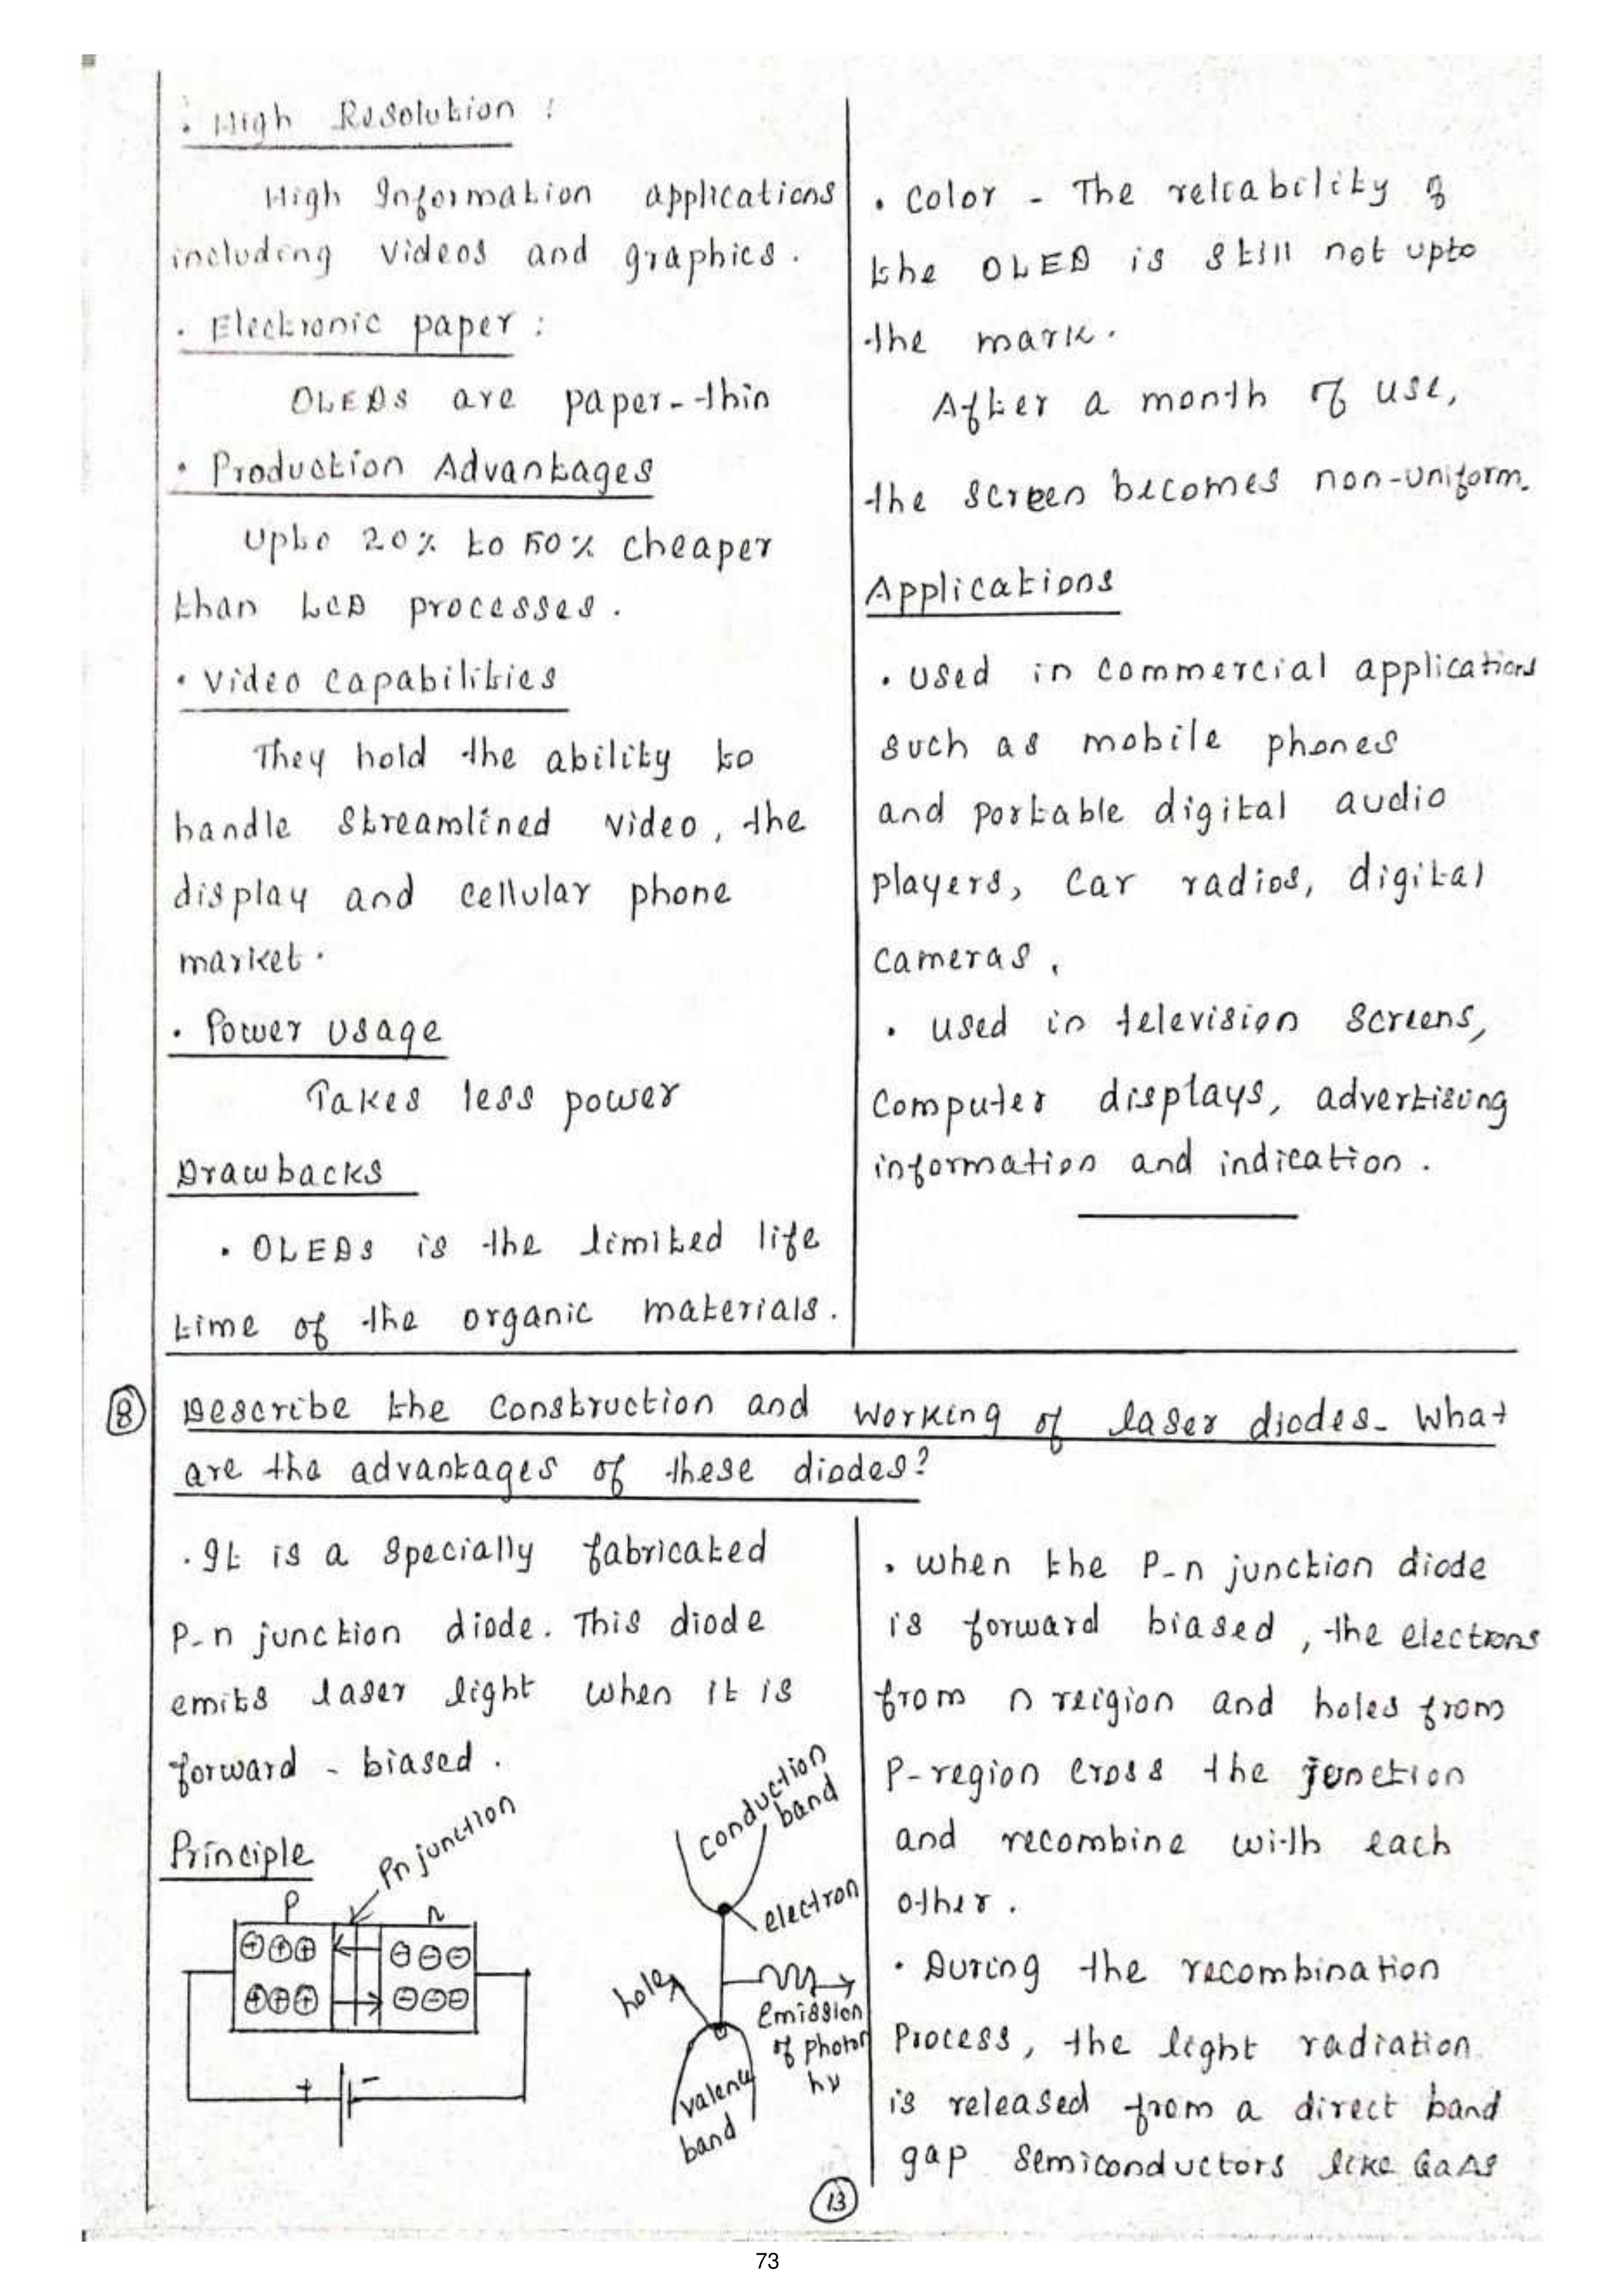 • High Resolution :
High Information applications
including videos and graphics.
• Electronic paper :
OLEDs are paper-thin
• Production Advantages
Upto 20% to 50% cheaper
than LCD processes.
• Video capabilities
They hold the ability to
handle streamlined video, the
display and cellular phone
market.
• Power usage
Takes less power
Drawbacks
• OLEDs is the limited life
time of the organic materials.
• Color - The reliability of
the OLED is still not upto
the mark.
After a month of use,
the screen becomes non-uniform.
Applications
• used in commercial applications
such as mobile phones
and portable digital audio
players, car radios, digital
cameras.
• used in television screens,
Computer displays, advertising
information and indication.
8 Describe the construction and working of laser diodes. What
are the advantages of these diodes?
• It is a specially fabricated
P-n junction diode. This diode
emits laser light when it is
forward - biased.
Principle
Pn junction
P n
⊕⊕⊕ ⊖⊖⊖
⊕⊕⊕ ⊖⊖⊖
+ -
conduction
band
electron
hole
Emission
of photon
hν
valence
band
• when the P-n junction diode
is forward biased, the electrons
from n reigion and holes from
P-region cross the junction
and recombine with each
other.
• During the recombination
Process, the light radiation
is released from a direct band
gap semiconductors like GaAs
13
73